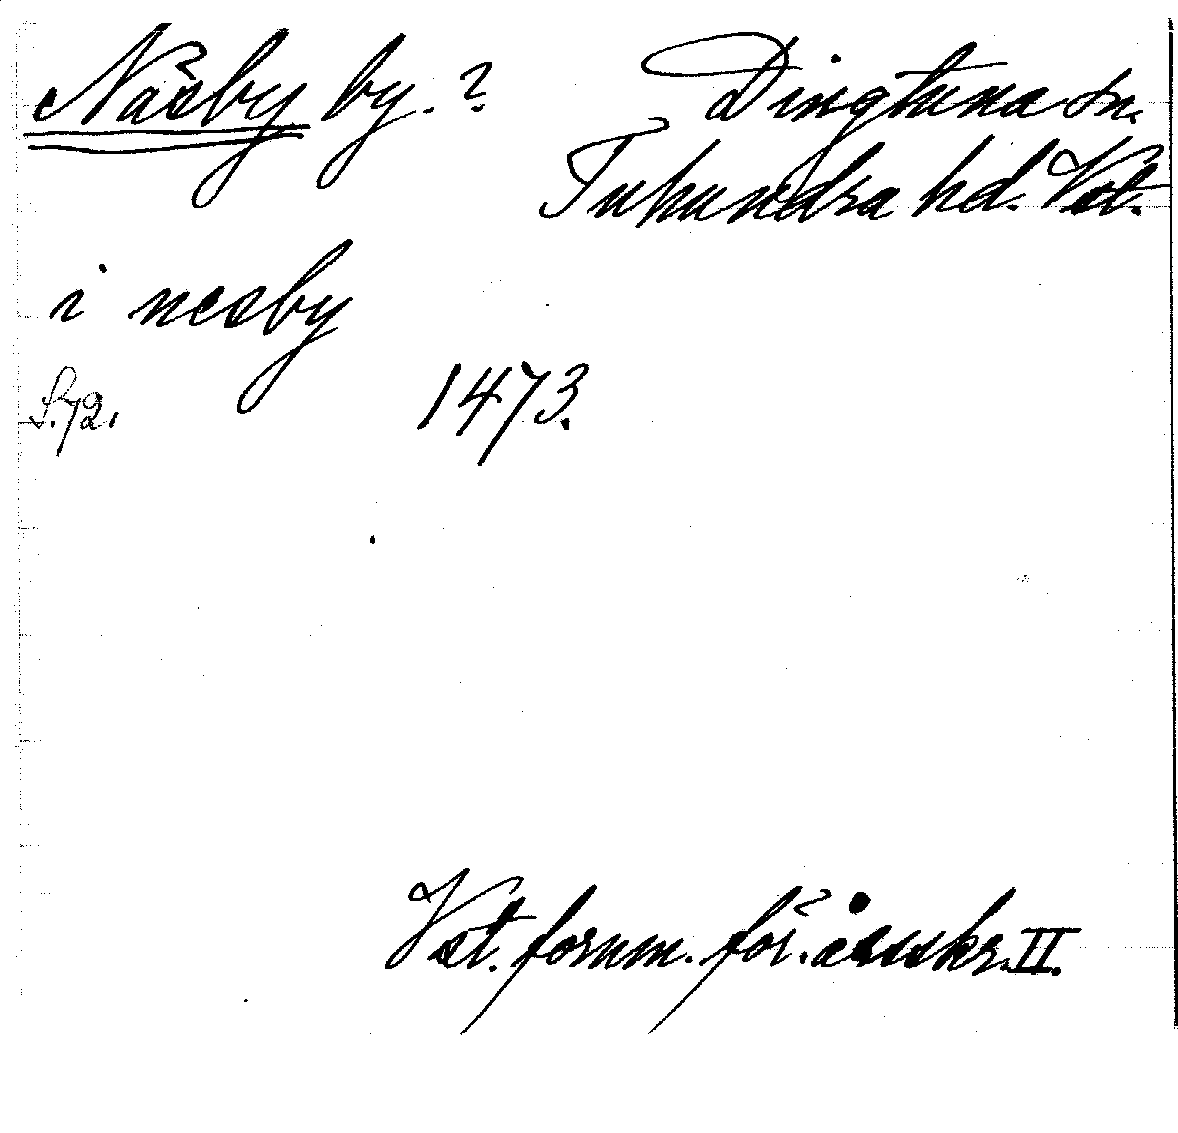 Näsby by. ? Dingtuna sn.
Tuhundra hd. Vstl.
i nesby
S. 72. 1473.
Vstl. fornm. för. årsskr. II.